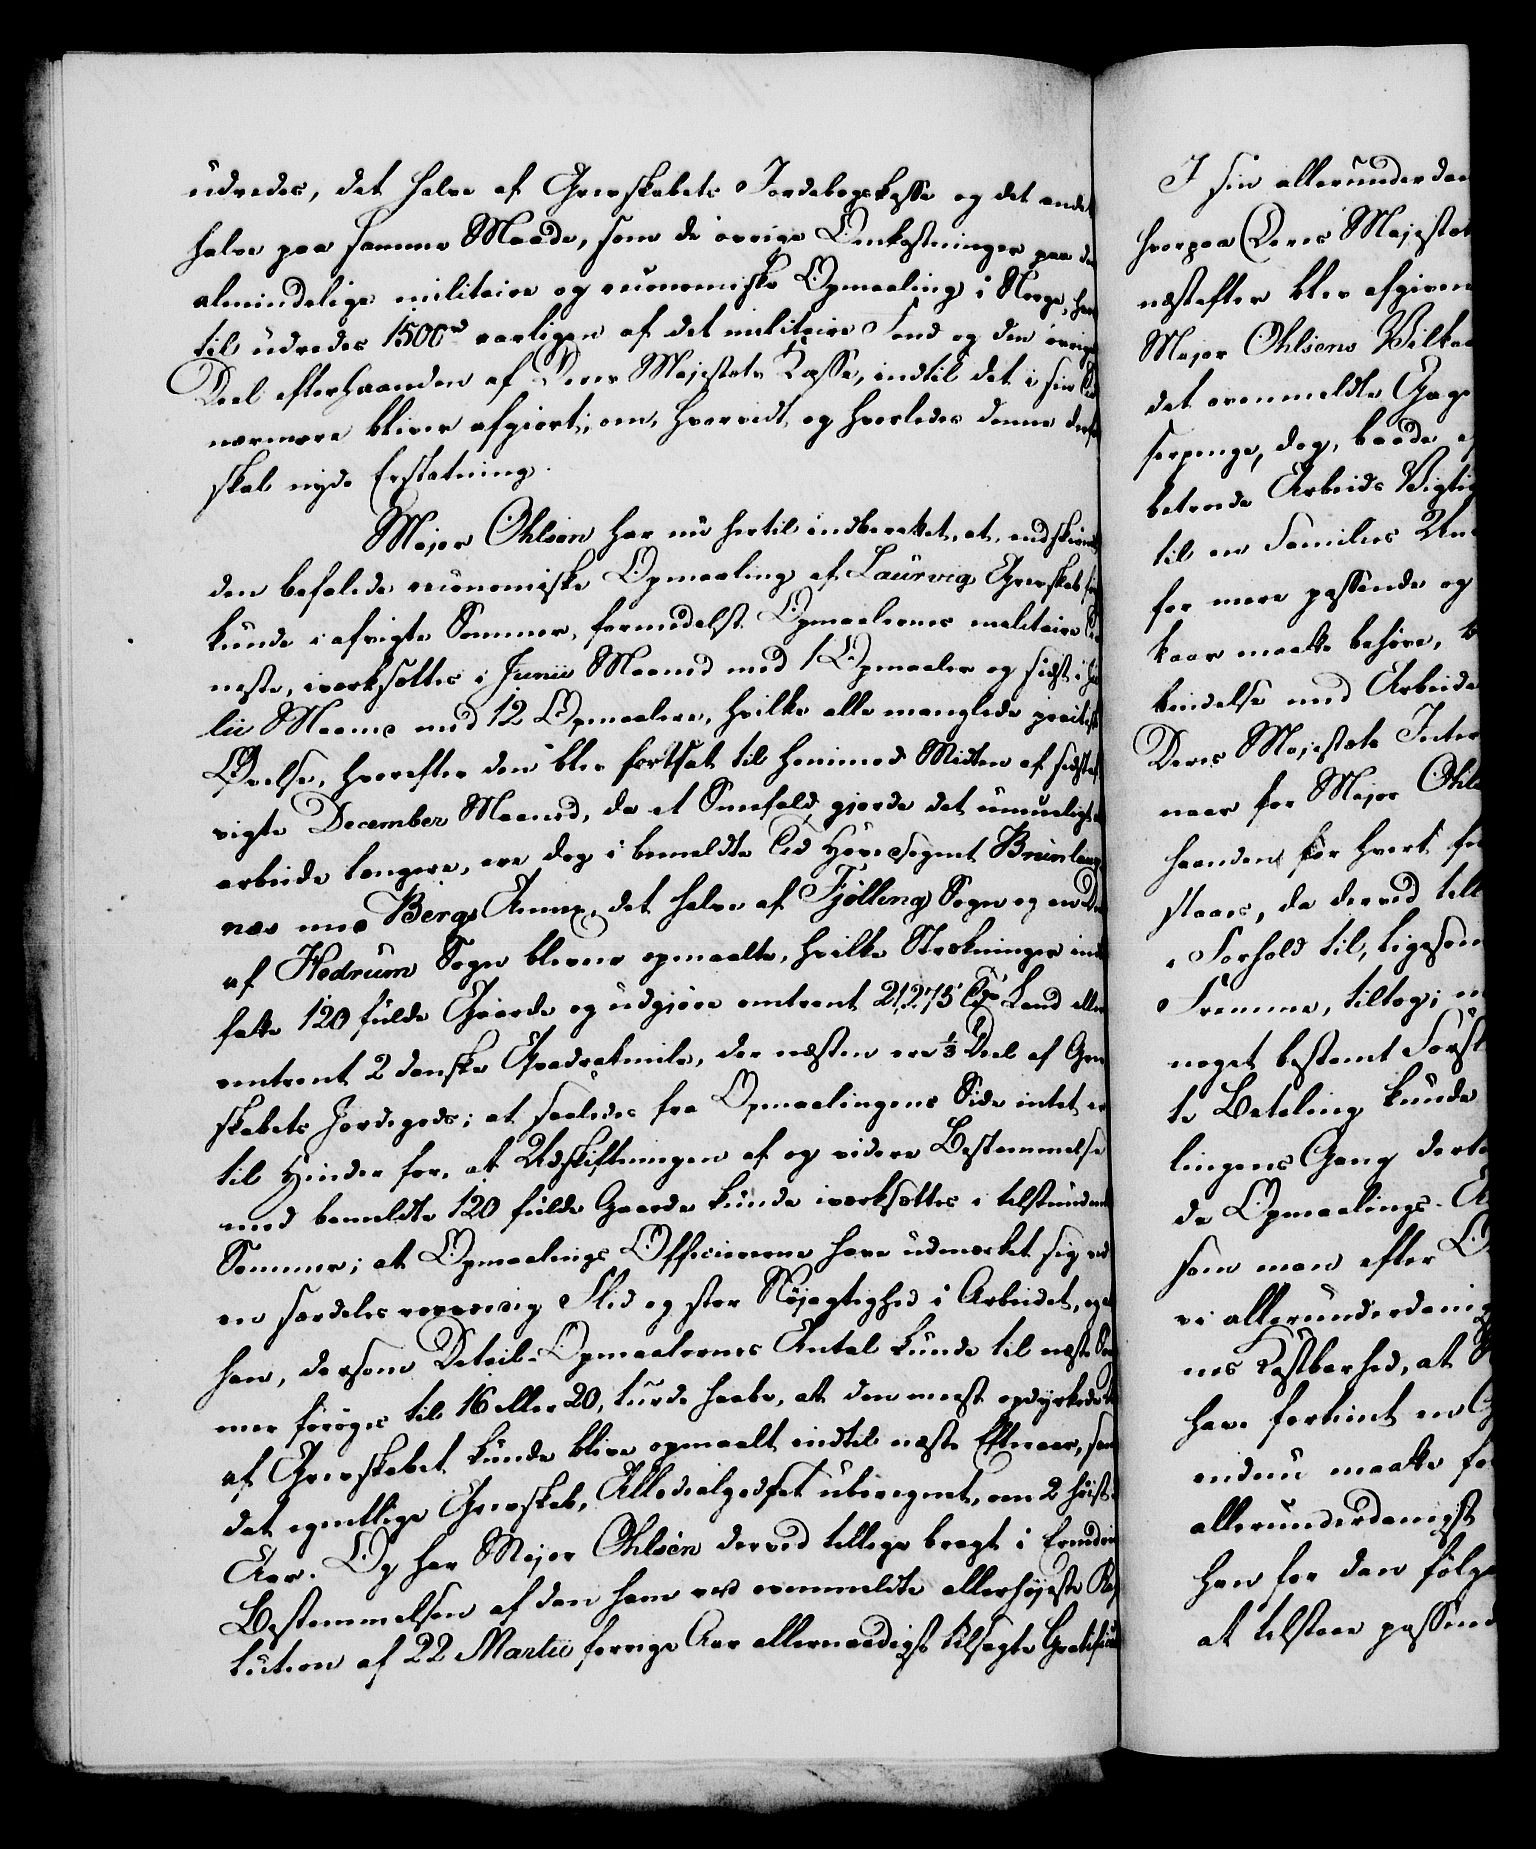 udredes, det halve af Grevskabets Jordebogskasse og det andet
halve paa samme Maade, som de øvrige Omkostninger paa den
almindelige militaire og oeconomiske Opmaaling i Norge, her
til udredes 1500rd aarligen af det militaire Fond og den øvrige
Deel efterhaanden af Deres Majestæts Kasse, indtil det i sin Tid
nærmere bliver afgiort, om, hvorvidt og hvorledes denne derfor
skal nyde Erstatning.
Major Ohlsen har nu hertil indberettet, at, endskiønt
den befalede oeconomiske Opmaaling af Laurvig Grevskab
kunde i afvigte Sommer, formedelst Opmaalernes militaire Tie
neste, iværksættes i Junii Maaned med 1 Opmaaler og sidst i Ju
lii Maaned med 12 Opmaalere, hvilke alle manglede practisk
Øvelse, hvorefter den blev fortsat til henimod Midten af sidstaf
vigte December Maaned, da et Sneefald gjorde det umueligt at
arbeide længere, ere dog i bemeldte Tid Hovedsognet Brunlaug
næs med Bergs Annex, det halve af Tjølling Sogn og en Deel
af Hedrum Sogn blevne opmaalte, hvilke Strækninger inde
fatte 120 fulde Gaarde og udgjøre omtrent 21,275 Tdr Land eller
omtrent 2 danske Qvadratmile, der næsten er 1/3 Deel af Grev
skabets Jordegods; at saaledes fra Opmaalingens Side intet er
til Hinder for, at Udskiftningen af og videre Bestemmelse
med bemeldte 120 fulde Gaarde kunde iværksættes i tilstundende
Sommer; at Opmaalings Officiererne have udmærket sig ved
en særdeles Flid og stor Nøjagtighed i Arbeidet, og at
han, dersom Detail-Opmaalernes Antal kunde til næste Som
mer forøges til 16 eller 20, turde haabe, at den meest opdyrkede Deel
af Grevskabet kunde blive opmaalt indtil næste Efteraar, samt
det egentlige Grevskab, Allodialgodset uberegnet, om 2 høist 3
Aar. Og har Major Ohlsen derved tillige bragt i Erindring
Bestemmelsen af den ham ved ovenmeldte allerhøjeste Reso
lution af 22 Martii forrige Aar allernaadigst tilsagte Gratification
I sin allerunderdan
hvorpaa Deres Majestæt
næstefter blev afgiven
Major Ohlsens Vilkaar
det ovenmeldte Gage
sepenge, dog, baade
betroede Arbeids Vigtig
til en Families Un
for mere passende og
kaar maatte behøve,
bindelse med Arbeide
Deres Majestæts Inter
naar for Major Ohls
haanden for hvert
staaes, da derved
i Forhold til, ligesom
Fremme, tiltog;
noget bestemt Forsl
te Betaling kunde
lingens Gang derte
de Opmaalings-
som man efter
vi allerunderdanig
nes Kostbarhed, at
have fortient en
endnu maatte for
allerunderdanigst
han for den følge
at tilstaae passend